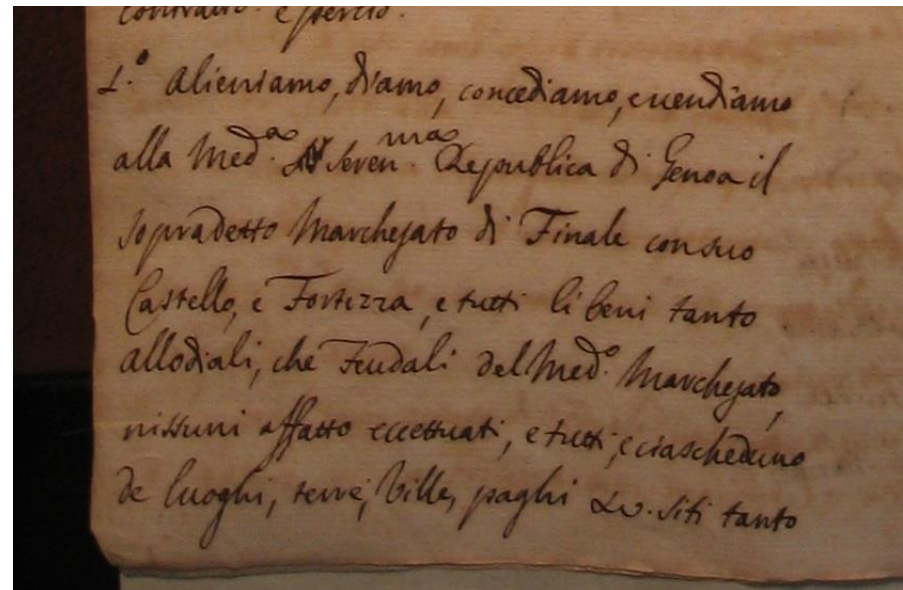 contratto. e perciò.
1.º Alieniamo, diamo, concediamo, e uendiamo
alla Med.ª Seren.ma Republica di Genoa il
sopradetto Marchesato di Finale con suo
Castello, e Fortezza, e tutti li beni tanto
allodiali, che Feudali del Med.º Marchesato,
nissuni affatto eccettuati, e tutti, e ciascheduno
de luoghi, terre, Ville, paghi &c. siti tanto